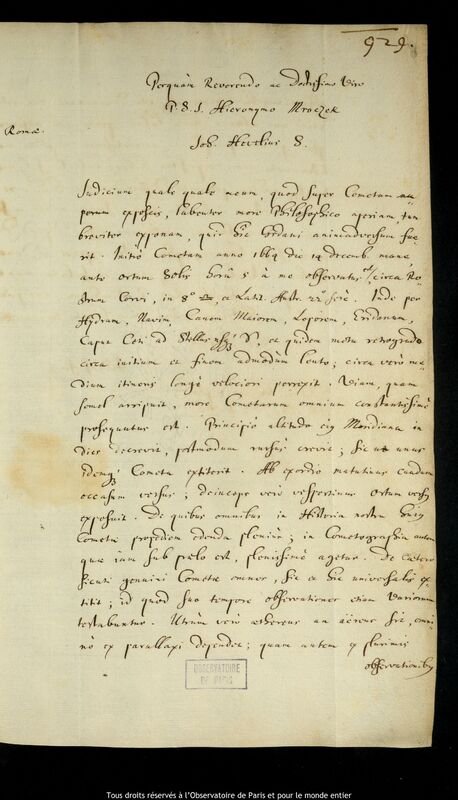 929.
Perquàm Reverendo ac Doctissimo Viro
P. S. J. Hieronymo Mroczek
Romæ.
Joh. Hevelius S.
Judicium quale quale meum, quod super Cometam nu
perum exposcis, lubenter more Philosophico aperiam, tum
breviter exponam, quid hic Gedani animadversum fue
rit. Initio Cometam anno 1664 die 14 Decemb. manè
ante ortum Solis horâ 5 à me observatus est, circa Ro
strum Corvi, in 8° ♎, et Latit. Austr. 22° ferè. Inde per
Hydram, Navim, Canem Maiorem, Leporem, Eridanum,
Caput Ceti ad Stellas usque ♈, et quidem motu retrogrado
circa initium et finem admodùm lento; circa verò me
dium itineris longè velociori perrexit. Viam, quam
semel arripuit, more Cometarum omnium constantissimè
prosequutus est. Principio altitudo eius Meridiana in
dies decrevit, postmodum rursùs crevit; sic ut unus
idemq; Cometa extiterit. Ab exordio matutinus caudam
occasum versus; deinceps verò vespertinus ortum versus
exposuit. De quibus omnibus in Historia nostra huius
Cometæ propediem edenda pleniùs; in Cometographia autem
quæ iam sub prelo est, plenissimè agetur. De cætero
sicuti genuini Cometæ omnes, sic et hic universalis ex
titit; id quod suo tempore observationes etiam Variorum
testabuntur. Utrùm verò æthereus an aëreus sit, omni
nò ex parallaxi dependet; quam autem ex plurimis
observationibus
OBSERVATOIRE
DE PARIS
Tous droits réservés à l'Observatoire de Paris et pour le monde entier